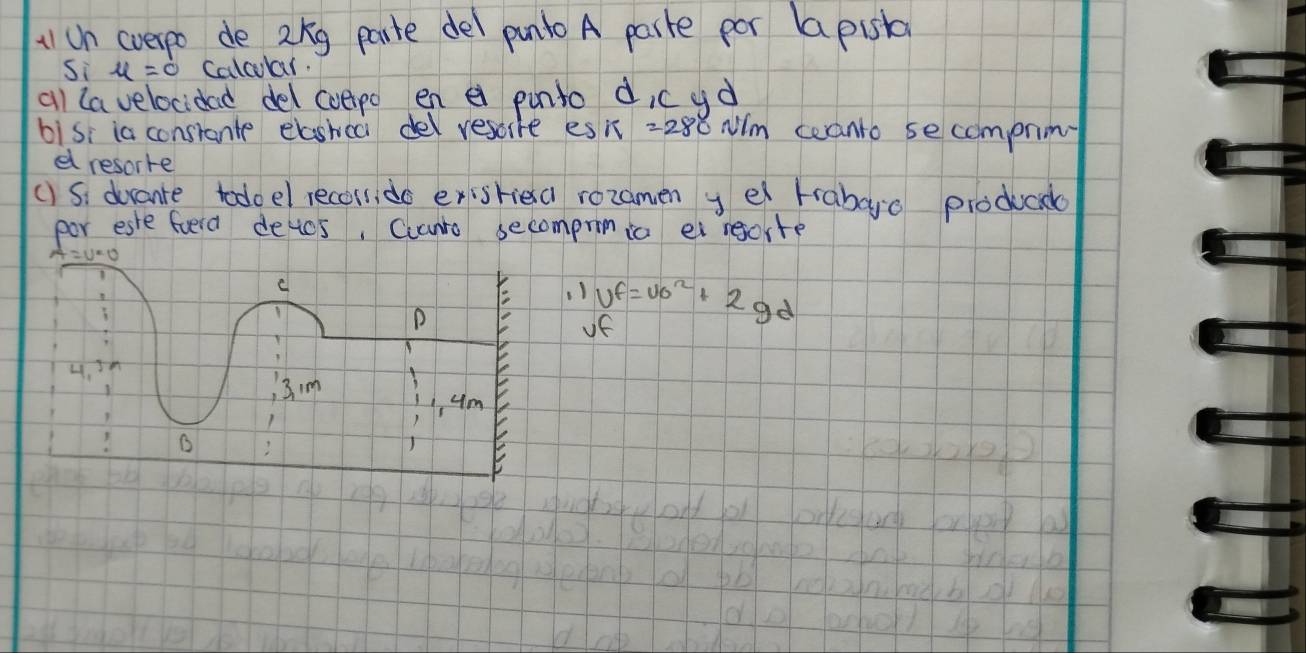 1) Un cuerpo de 2Kg parte del punto A parte por la pista
Si u=0 calcular.
a) La velocidad del cuerpo en el punto d,c y d
b) Si la constante elastica del resorte es K = 280 N/m cuanto se comprim-
el resorte
c) Si durante todo el recorrido existiera rozamen y el trabajo producido
por este fuera de 40J, Cuanto se comprim ia el resorte
A=V=0
C
D
4,3m
3,1m
1,4m
B
1) Vf=Vo²+ 2gd
Vf